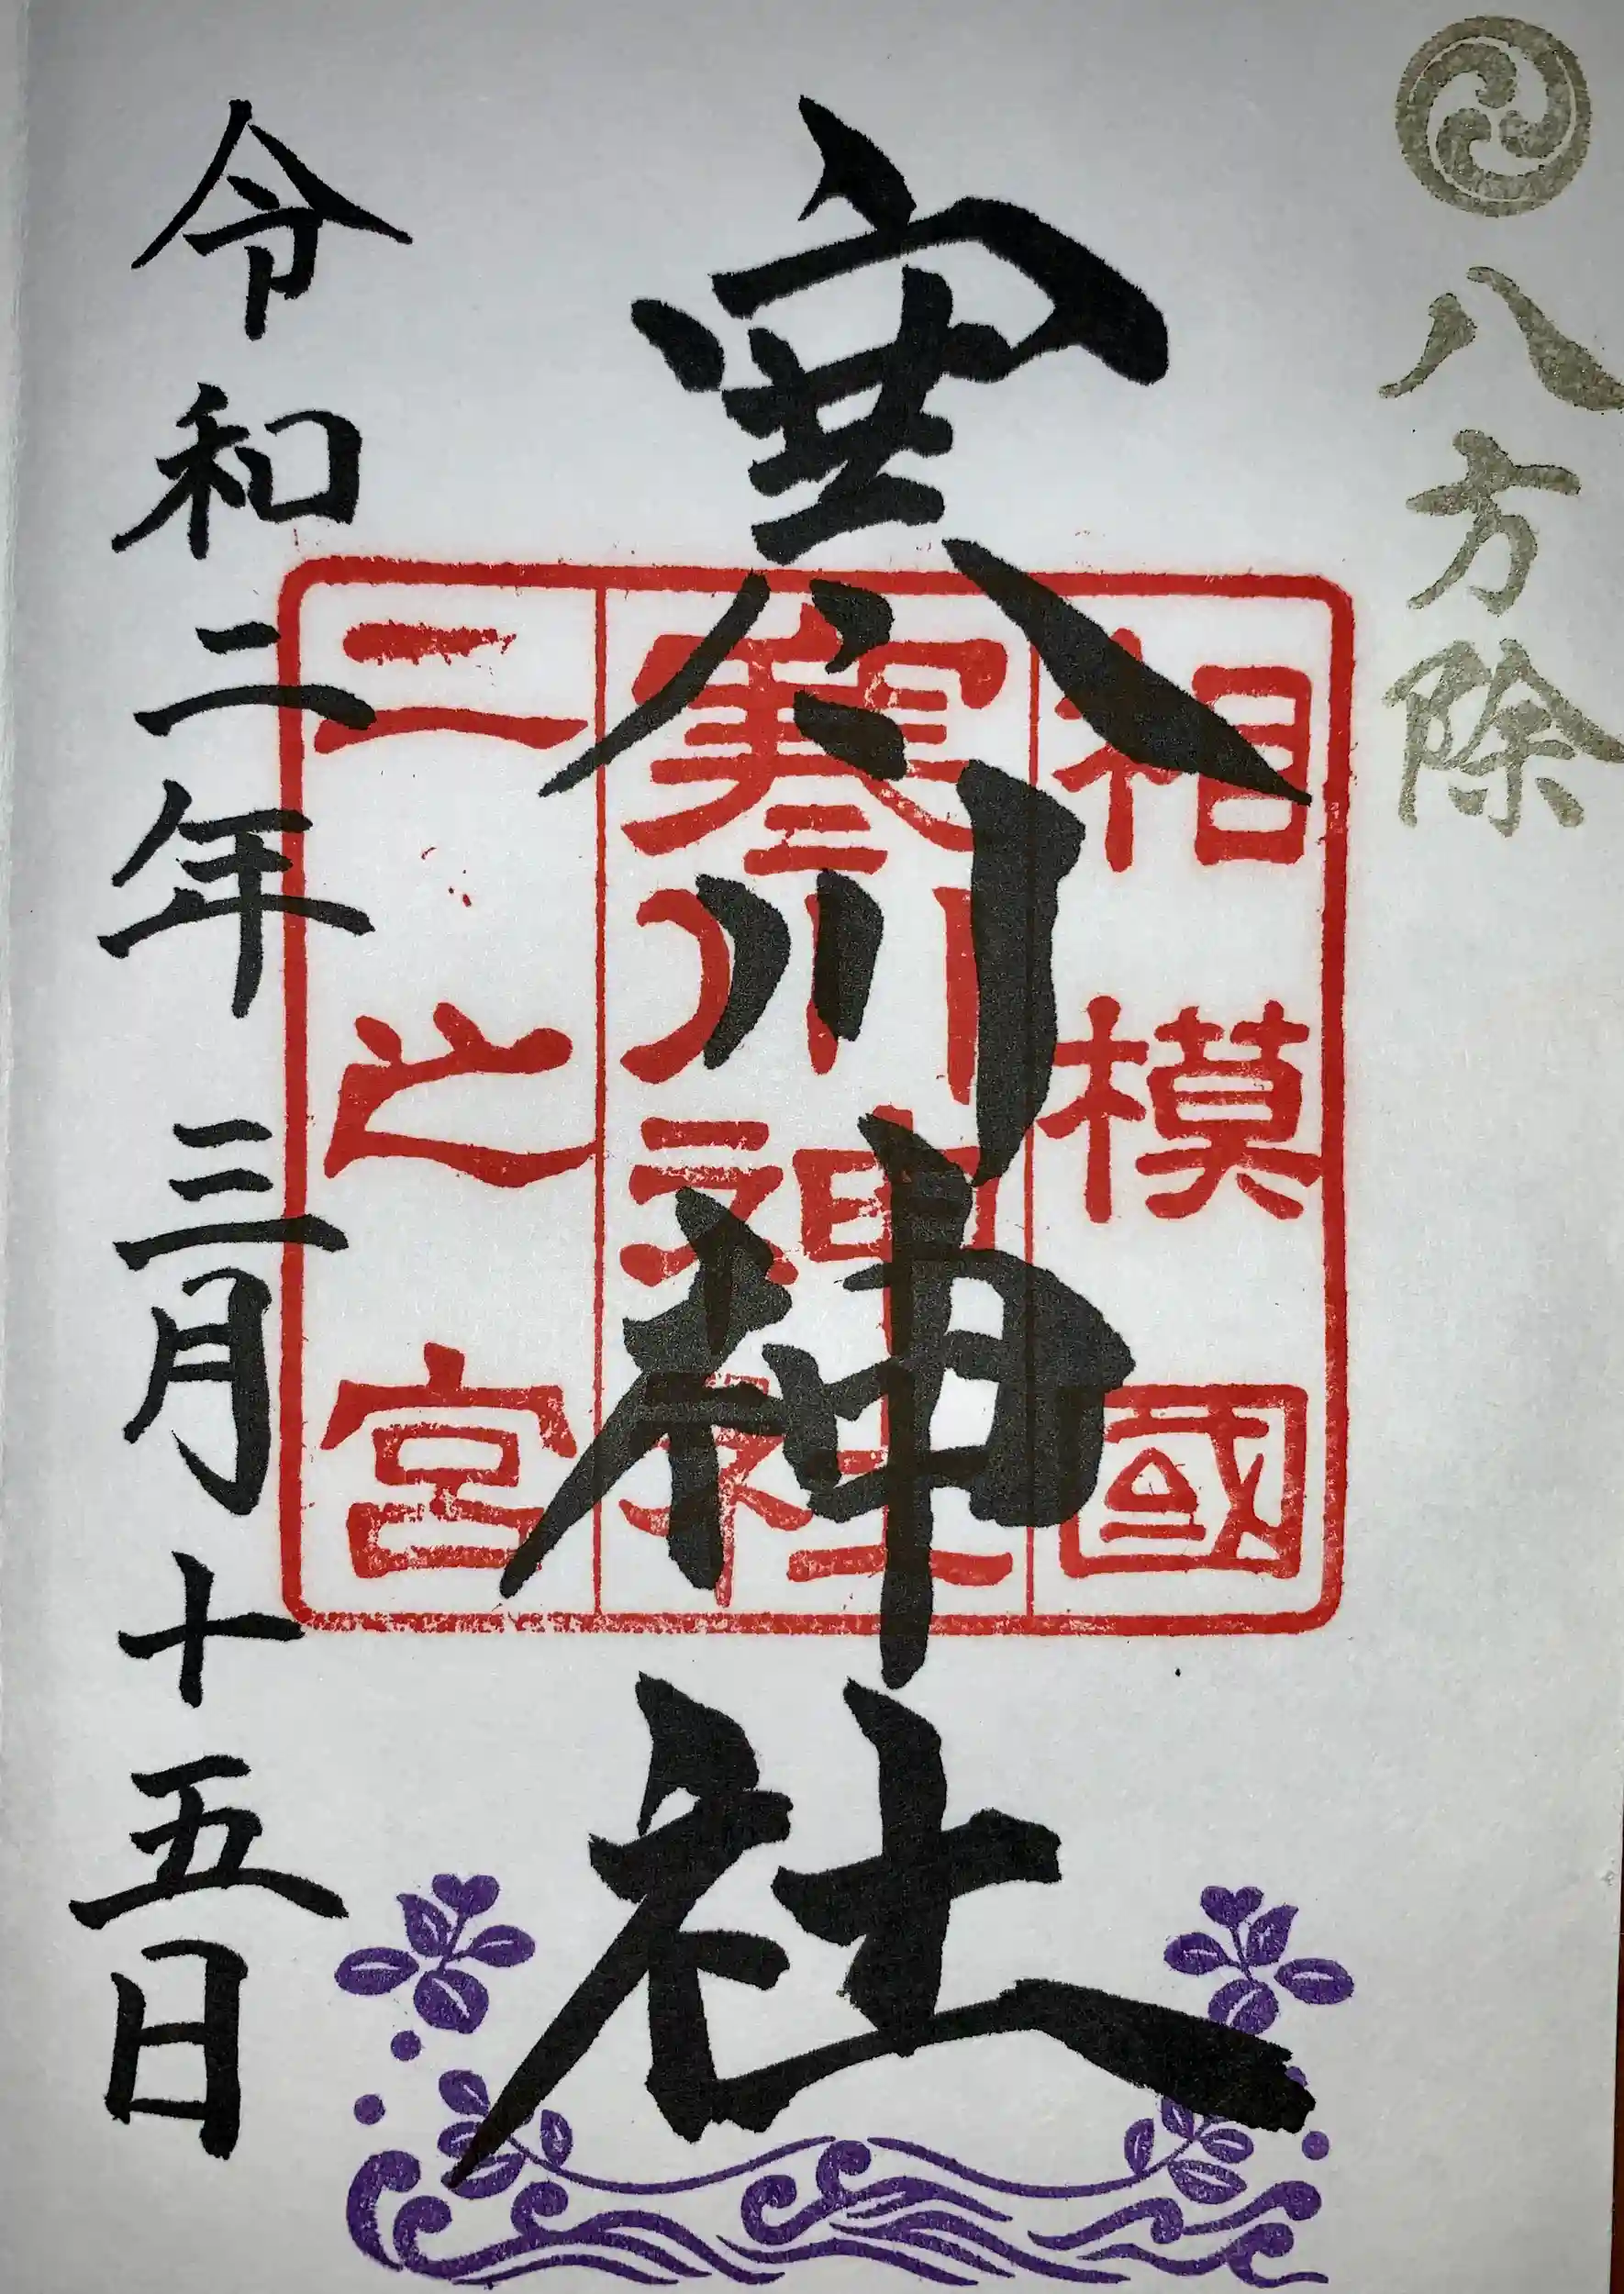 八方除
寒川神社
相模國
寒川神社
二之宮
令和二年三月十五日